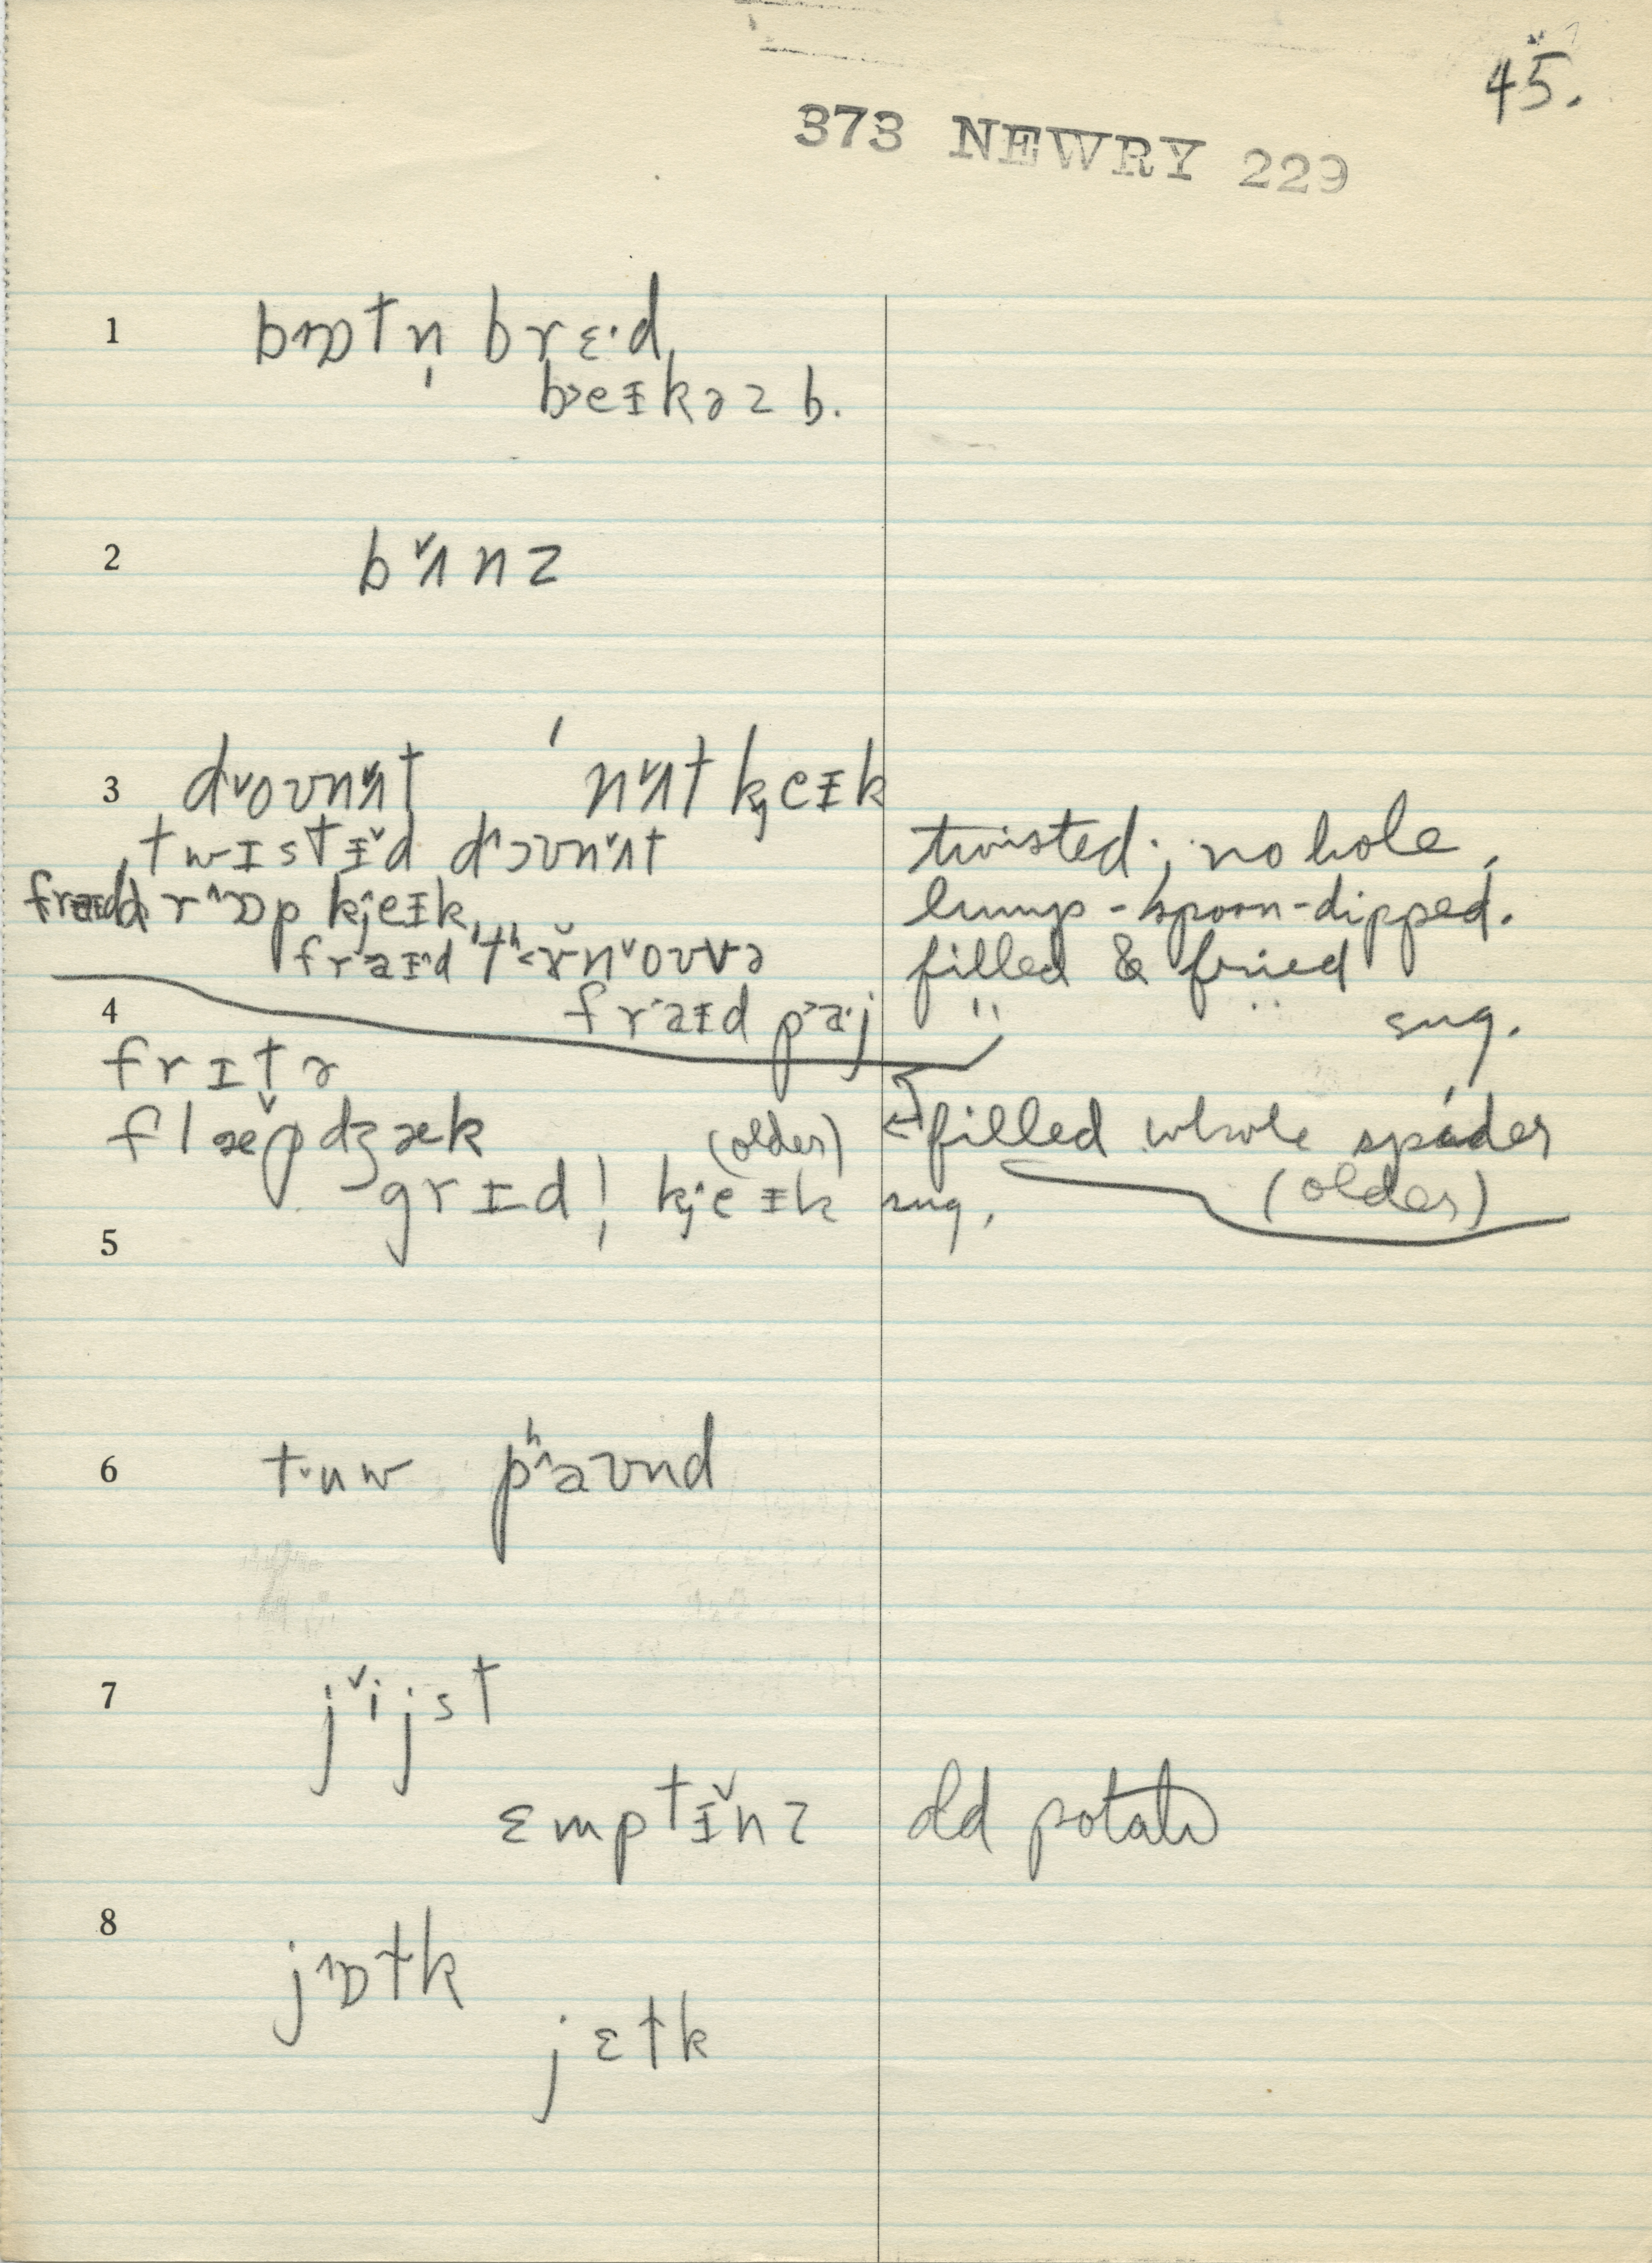 45.
373 NEWRY 229
1 bɒtn̩ brɛ·d,
beɪkəz b.
2 bʌnz
3 doʊnʌt ˈnʌt kjeɪk
twɪstɪ̆d dɔʊnʌt twisted; no hole,
draɒp kjeɪk, lump-spoon-dipped.
fraɪd tʰɜnoʊvə filled & fried
4 fraɪd paj " " sug.
frɪtə
flæpdʒæk (older) ← filled whole spider
grɪdl̩ kjeɪk sug. (older)
5
6 tuw pʰaʊnd
7 jijst
ɛmptɪ̆nz old potato
8 jɒtk
jɛtk